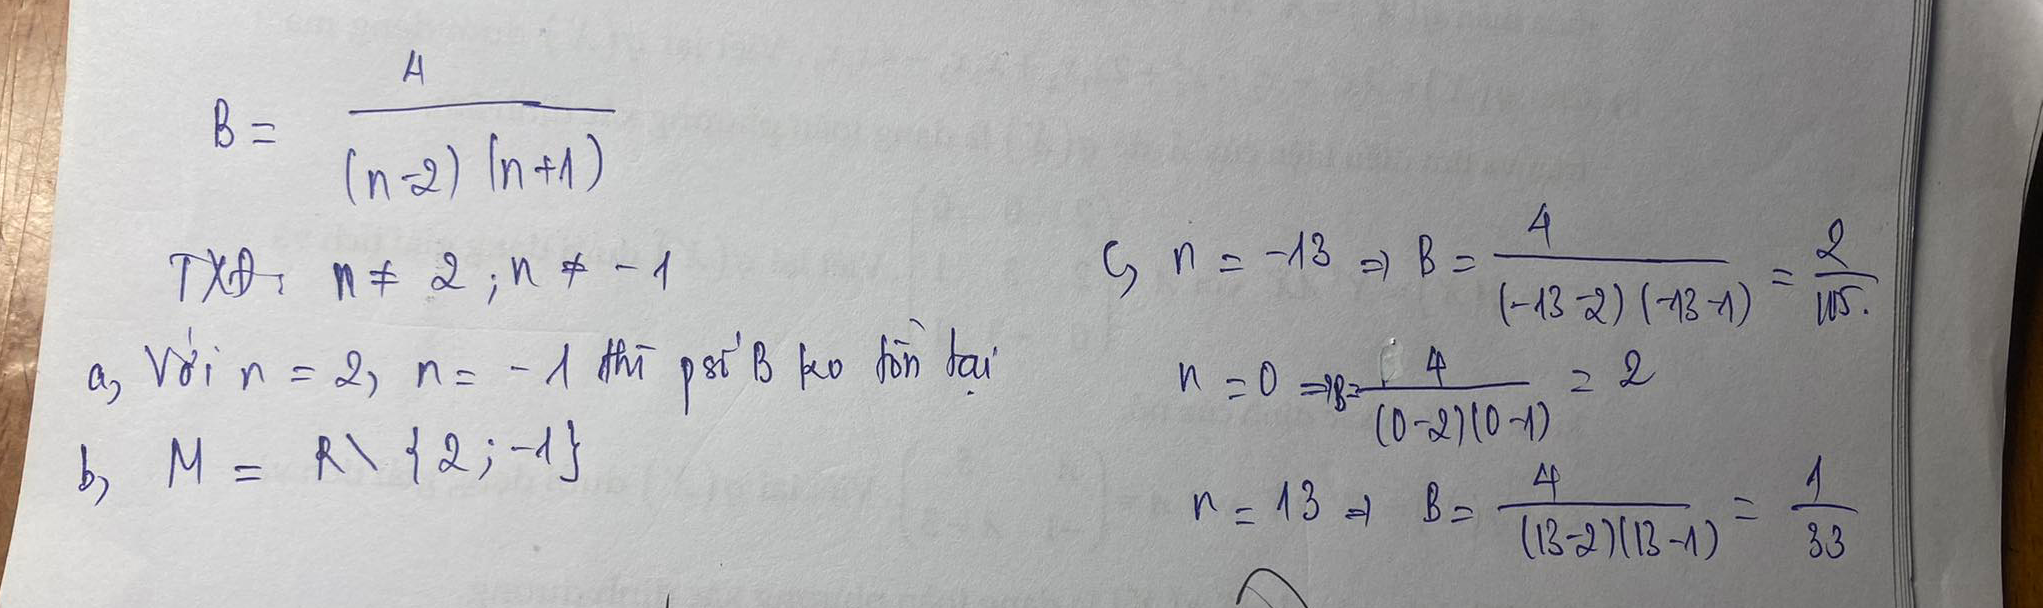 B = 4 / (n-2) (n+1)
TXĐ: n ≠ 2 ; n ≠ -1
a, Với n = 2, n = -1 thì psố B ko tồn tại
b, M = R \ {2 ; -1}
c, n = -13 ⇒ B = 4 / (-13-2) (-13-1) = 2 / 105.
n = 0 ⇒ B = 4 / (0-2)(0-1) = 2
n = 13 ⇒ B = 4 / (13-2)(13-1) = 1 / 33